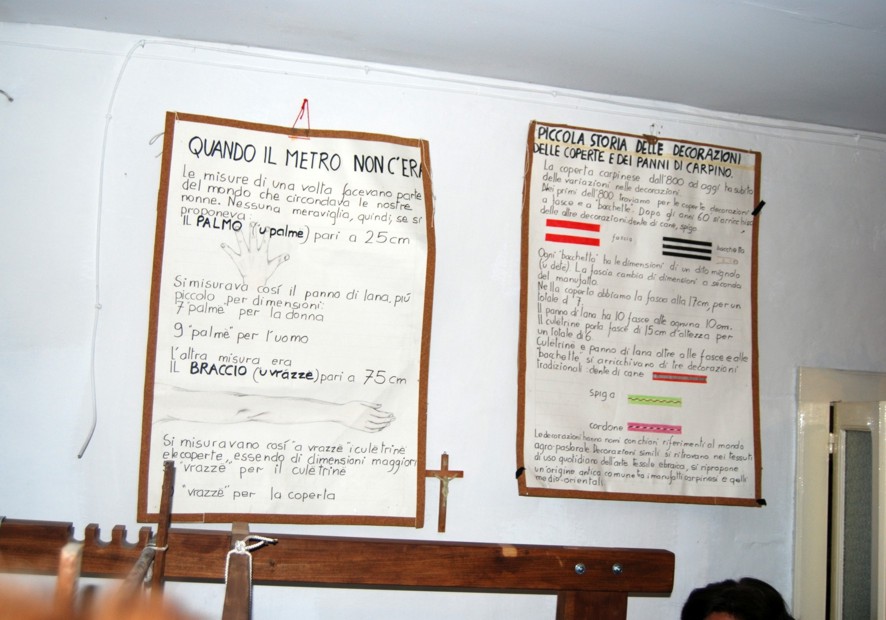 QUANDO IL METRO NON C'ERA
Le misure di una volta facevano parte
del mondo che circondava le nostre
nonne. Nessuna meraviglia, quindi, se si
proponeva:
IL PALMO (u palme) pari a 25cm
Si misurava così il panno di lana, più
piccolo per dimensioni:
7 "palmë" per la donna
9 "palmë" per l'uomo
L'altra misura era
IL BRACCIO (u vrazze) pari a 75cm
Si misuravano così "a vrazze" i culetrine
e le coperte, essendo di dimensioni maggiori
"vrazzë" per il culetrine
"vrazzë" per la coperta
PICCOLA STORIA DELLE DECORAZIONI
DELLE COPERTE E DEI PANNI DI CARPINO.
La coperta carpinese dall'800 ad oggi ha subito
delle variazioni nelle decorazioni.
Nei primi dell'800 troviamo per le coperte decorazioni
a fasce e a "bacchette". Dopo gli anni 60 si arricchisce
delle altre decorazioni: dente di cane, spiga.
fascia
bacchetta
Ogni "bacchetta" ha le dimensioni di un dito mignolo
(u dete). La fascia cambia di dimensioni a seconda
del manufatto.
Nella coperta abbiamo la fascia alta 17cm, per un
totale di 7.
Il panno di lana ha 10 fasce alte ognuna 10cm.
Il culetrine porta fasce di 15cm d'altezza per
un totale di 6.
Culetrine e panno di lana oltre alle fasce e alle
"bacchette" si arricchivano di tre decorazioni
tradizionali: dente di cane
spiga
cordone
Le decorazioni hanno nomi con chiari riferimenti al mondo
agro-pastorale. Decorazioni simili si ritrovano nei tessuti
di uso quotidiano dell'arte tessile ebraica, si ripropone
un'origine antica comune tra i manufatti carpinesi e quelli
medio-orientali.